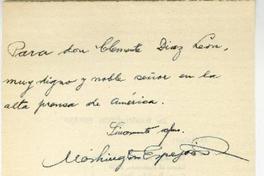 Para don Clemente Diaz León,
muy digno y noble señor en la
alta prensa de América.
Washington Espejo